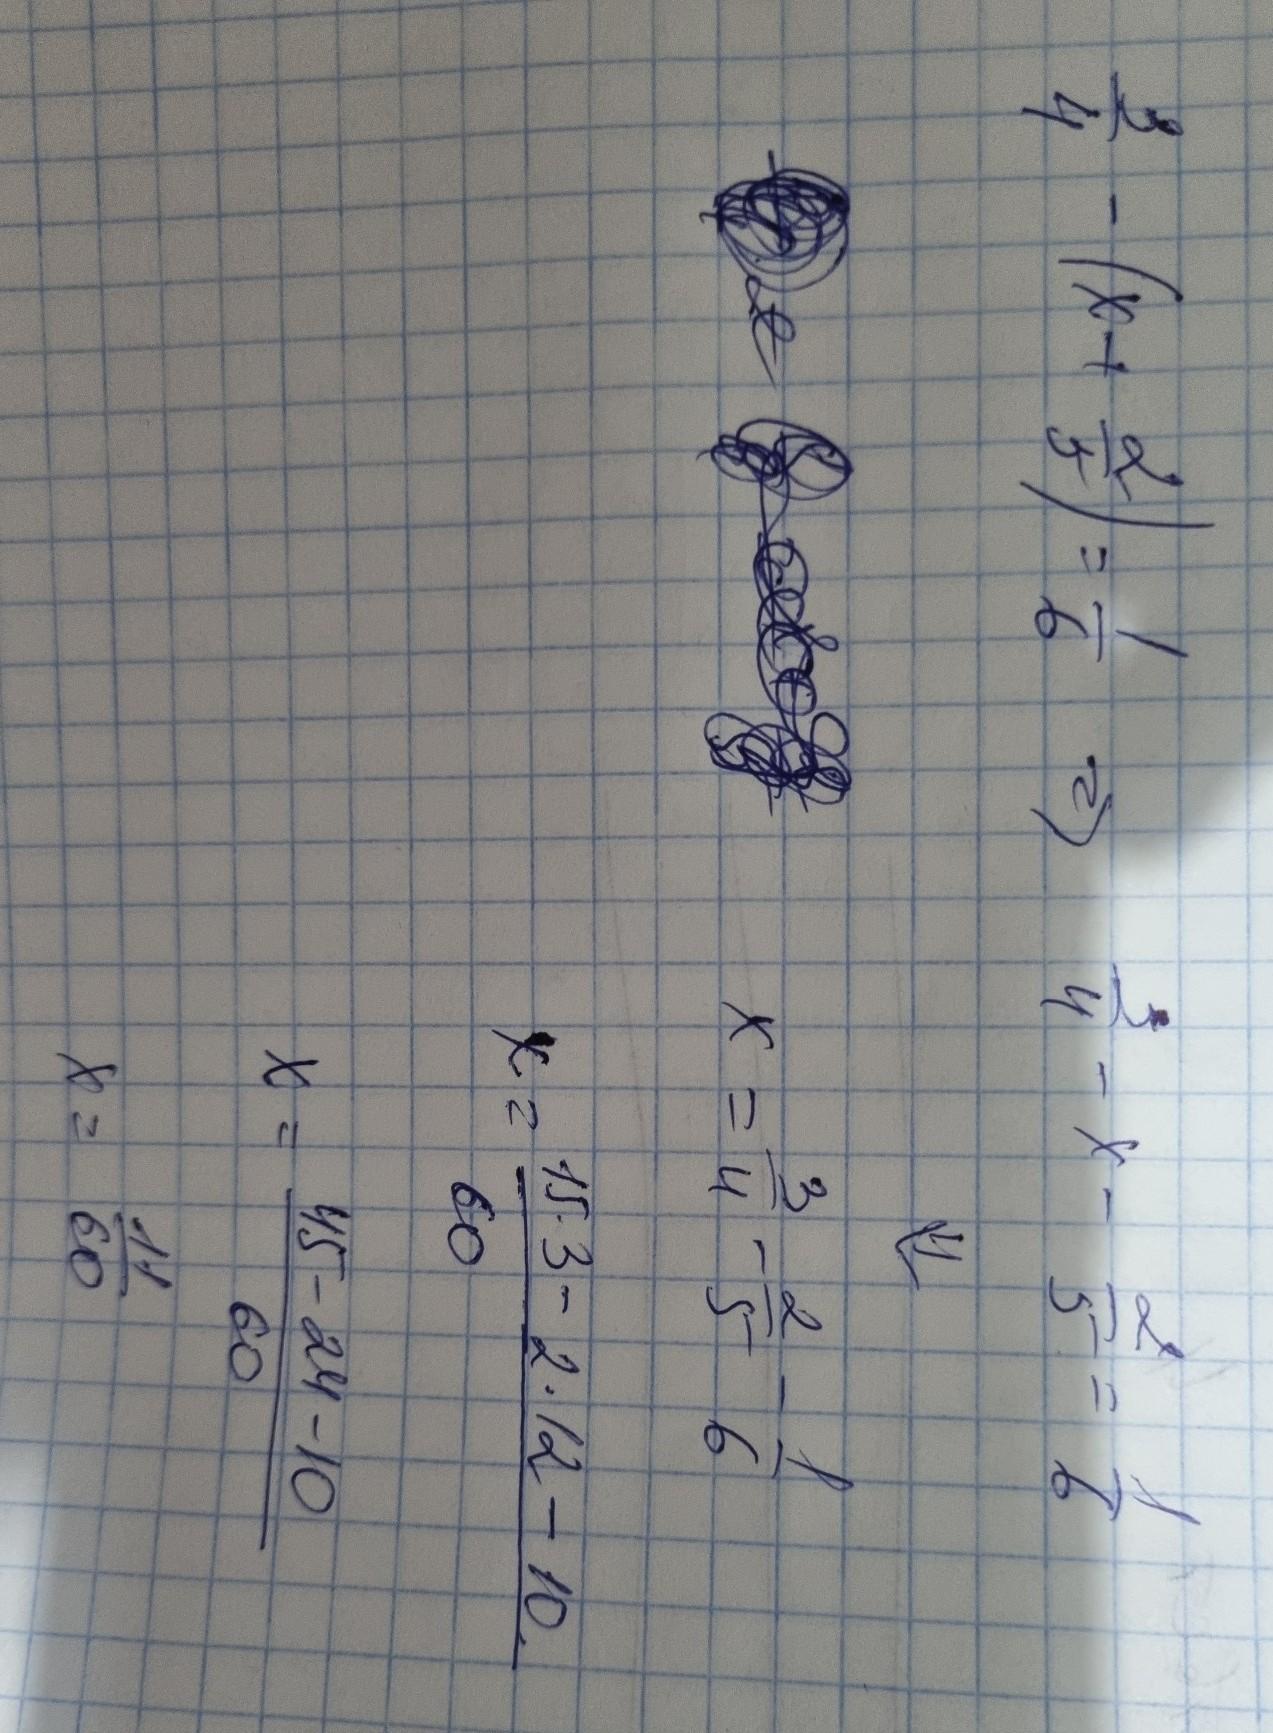 3/4 - (x + 2/5) = 1/6 ⇒ 3/4 - x - 2/5 = 1/6
⇓
x = 3/4 - 2/5 - 1/6
x = (15·3 - 2·12 - 10)/60
x = (45 - 24 - 10)/60
x = 11/60